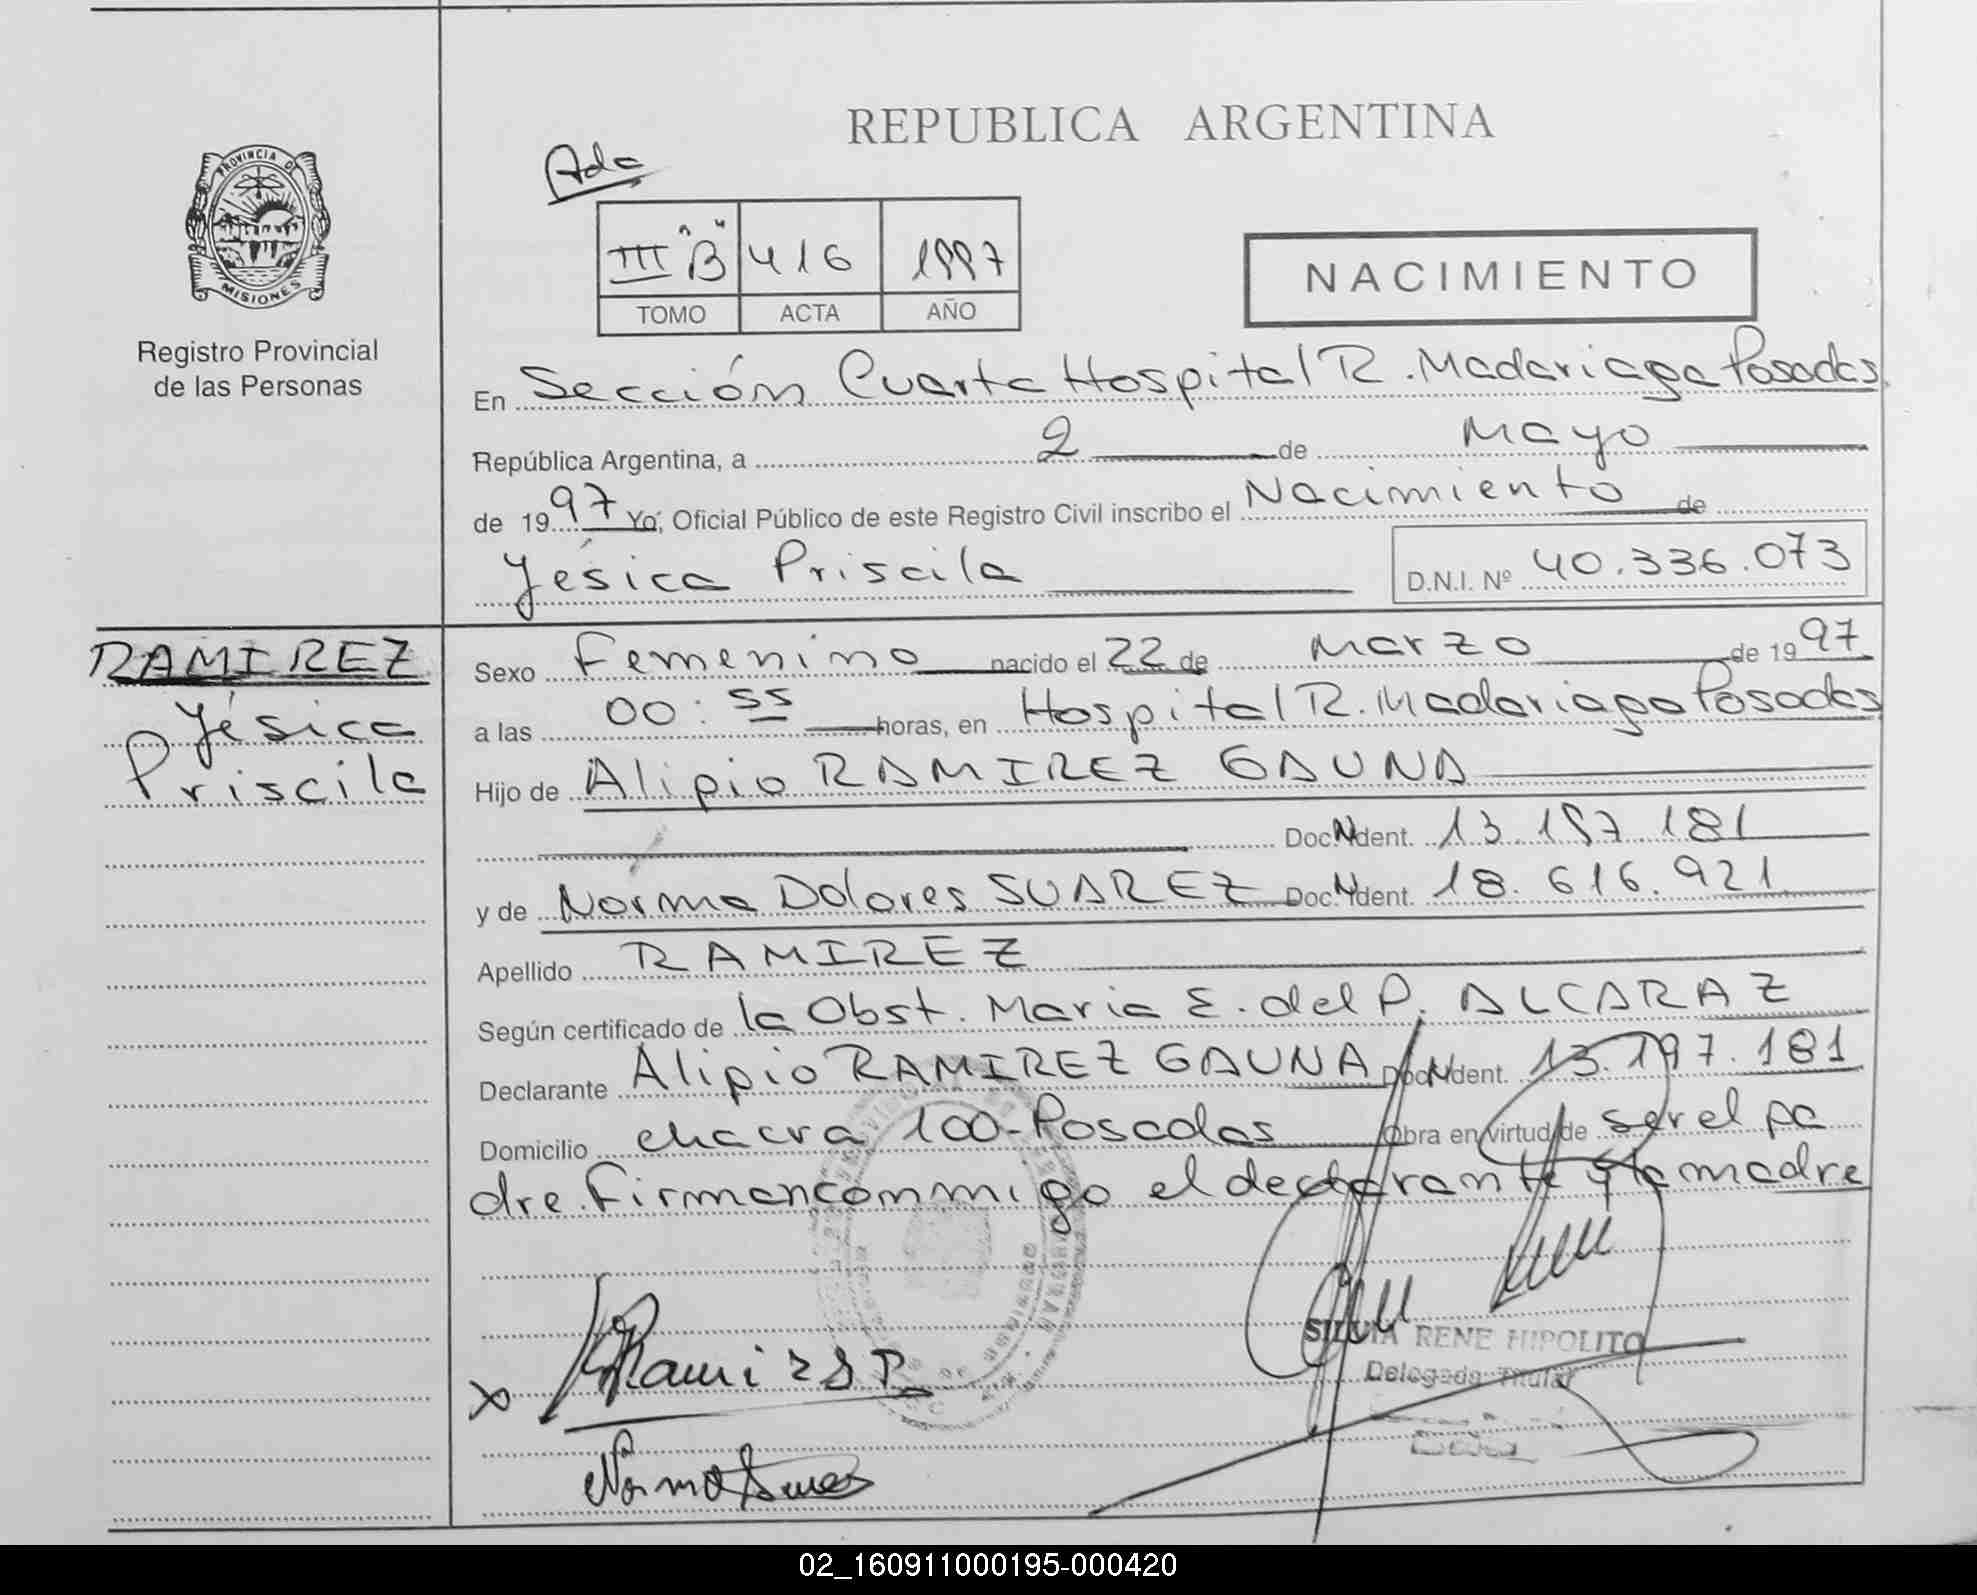 REPUBLICA ARGENTINA
Ada
PROVINCIA DE
MISIONES
Registro Provincial
de las Personas
III "B" 416 1997
TOMO ACTA AÑO
NACIMIENTO
En Sección Cuarta Hospital R. Madariaga Posadas
República Argentina, a 2 de Mayo
de 1997 Yo, Oficial Público de este Registro Civil inscribo el Nacimiento de
Yésica Priscila D.N.I. Nº 40.336.073
RAMIREZ
Yésica
Priscila
Sexo Femenino nacido el 22 de Marzo de 1997
a las 00:55 horas, en Hospital R. Madariaga Posadas
Hijo de Alipio RAMIREZ GAUNA
Doc. N Ident. 13.197.181
y de Norma Dolores SUAREZ Doc. N Ident. 18.616.921
Apellido RAMIREZ
Según certificado de la Obst. Maria E. del P. ALCARAZ
Declarante Alipio RAMIREZ GAUNA Doc. N Ident. 13.197.181
Domicilio chacra 100-Posadas Obra en virtud de ser el pa
dre. Firman conmigo el declarante y la madre
SILVIA RENE HIPOLITO
Delegada Titular
02_160911000195-000420